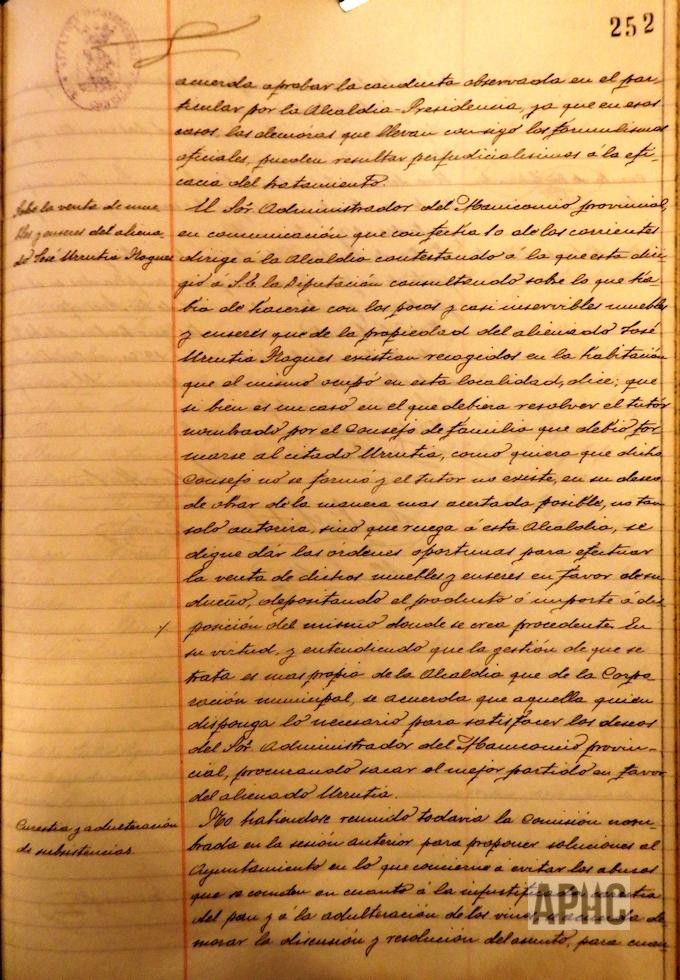 252
acuerda aprobar la conducta observada en el par-
ticular por la Alcaldia-Presidencia, ya que en esos
casos, las demoras que llevan consigo los formulismos
oficiales, pueden resultar perjudicialisimas a la efi-
cacia del tratamiento.
Sobre la venta de mue
bles y enseres del aliena-
do José Urrutia Ragues
El Sór. Administrador del Manicomio provincial,
en comunicación que con fecha 10 de los corrientes
dirige á la Alcaldia contestando á la que esta diri
gió á S.E. la Diputación consultando sobre lo que ha
bia de hacerse con los pocos y casi inservibles muebles
y enseres que de la propiedad del alienado José
Urrutia Ragues existian recogidos en la habitación
que el mismo ocupó en esta localidad, dice; que
si bien es un caso en el que debiera resolver el tutor
nombrado por el Consejo de familia que debió for
marse al citado Urrutia, como quiera que dicho
Consejo no se formó y el tutor no existe, en su deseo
de obrar de la manera mas acertada posible, no tan
solo autoriza, sino que ruega á esta Alcaldia, se
digne dar las órdenes oportunas para efectuar
la venta de dichos muebles y enseres en favor de su
dueño, depositando el producto ó importe á dis
posición del mismo donde se crea procedente. En
su virtud, y entendiendo que la gestión de que se
trata es mas propia de la Alcaldia que de la Corpo
ración municipal, se acuerda que aquella quien
disponga lo necesario para satisfacer los deseos
del Sór. Administrador del Manicomio provin-
cial, procurando sacar el mejor partido en favor
del alienado Urrutia.
Carestia y adulteración
de subsistencias.
No habiendose reunido todavia la Comisión nom-
brada en la sesión anterior para proponer soluciones al
Ayuntamiento en lo que concierne á evitar los abusos
que se cometen en cuanto á la injustificada carestia
del pan y á la adulteración de los vinos, se acuerda de
morar la discusión y resolución del asunto, para cuan
APHC